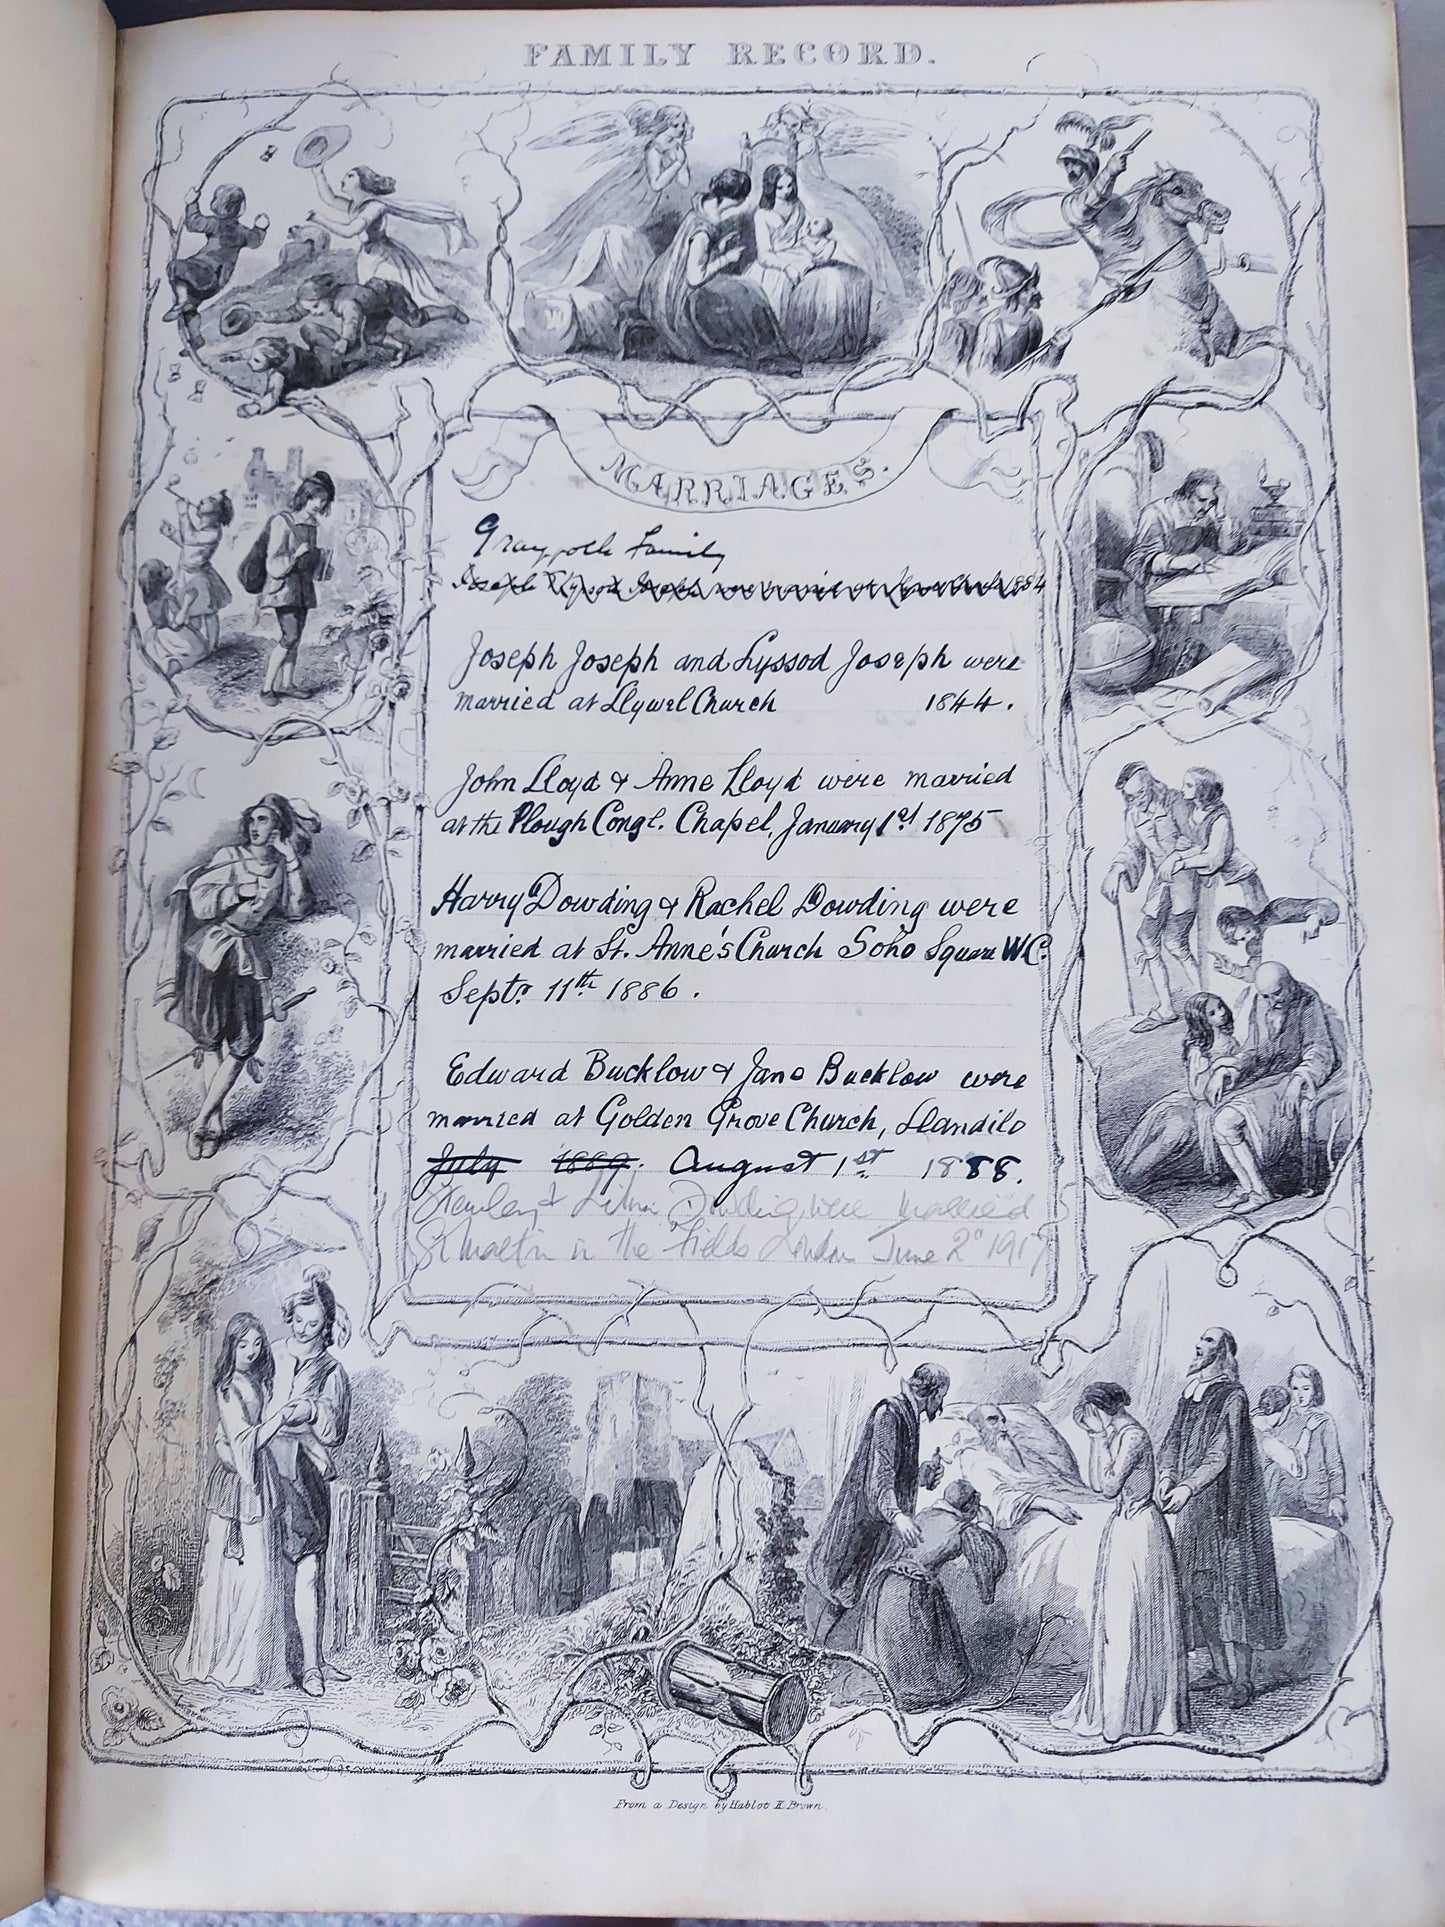 FAMILY RECORD.
MARRIAGES.
Family
Joseph 1884
Joseph Joseph and Lyssod Joseph were
married at Llywel Church 1844.
John Lloyd & Anne Lloyd were married
at the Plough Congl. Chapel, January 1st 1875
Harry Dowding & Rachel Dowding were
married at St. Anne's Church Soho Square W.C.
Septr. 11th 1886.
Edward Bucklow & Jane Bucklow were
married at Golden Grove Church, Llandilo
July 1889. August 1st 1888.
& Dowding were married
St Martin in the Fields London June 2d 1917
From a Design by Hablot K. Brown.